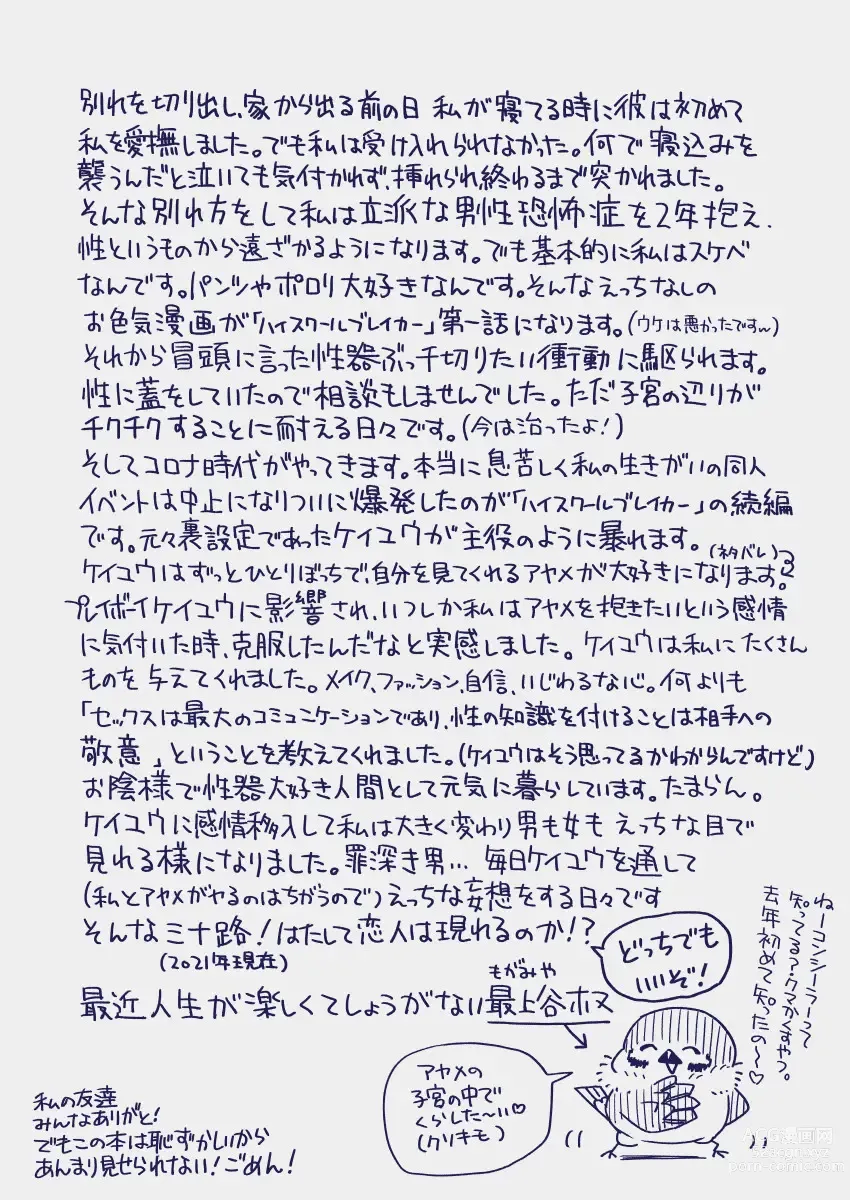 別れを切り出し、家から出る前の日 私が寝てる時に彼は初めて
私を愛撫しました。でも私は受け入れられなかった。何で寝込みを
襲うんだと泣いても気付かれず、挿れられ終わるまで突かれました。
そんな別れ方をして私は立派な男性恐怖症を2年抱え、
性というものから遠ざかるようになります。でも基本的に私はスケベ
なんです。パンツやポロリ大好きなんです。そんなえっちなしの
お色気漫画が「ハイスクールブレイカー」第一話になります。(ウケは悪かったですw)
それから冒頭に言った性器ぶっ千切りたい衝動に駆られます。
性に蓋をしていたので相談もしませんでした。ただ子宮の辺りが
チクチクすることに耐える日々です。(今は治ったよ!)
そしてコロナ時代がやってきます。本当に息苦しく私の生きがいの同人
イベントは中止になりついに爆発したのが「ハイスクールブレイカー」の続編
です。元々裏設定であったケイユウが主役のように暴れます。
(ネタバレ)
ケイユウはずっとひとりぼっちで、自分を見てくれるアヤメが大好きになります。
プレイボーイケイユウに影響され、いつしか私はアヤメを抱きたいという感情
に気付いた時、克服したんだなと実感しました。ケイユウは私にたくさん
ものを与えてくれました。メイク、ファッション、自信、いじわるな心。何よりも
「セックスは最大のコミュニケーションであり、性の知識を付けることは相手への
敬意」ということを教えてくれました。(ケイユウはそう思ってるかわからんですけど)
お陰様で性器大好き人間として元気に暮らしています。たまらん。
ケイユウに感情移入して私は大きく変わり男も女もえっちな目で
見れる様になりました。罪深き男… 毎日ケイユウを通して
(私とアヤメがヤるのはちがうので)えっちな妄想をする日々です
そんなミナ路!はたして恋人は現れるのか!?
(2021年現在)
どっちでも
いいぞ!
最近人生が楽しくてしょうがない最上谷ホヌ
もがみや
ねーコンシーラーって
知ってる?クマかくすやつ。
去年初めて知ったの〜♡
アヤメの
子宮の中で
くらした〜い♡
(クソキモ)
私の友達
みんなありがと!
でもこの本は恥ずかしいから
あんまり見せられない!ごめん!
ACG漫画网